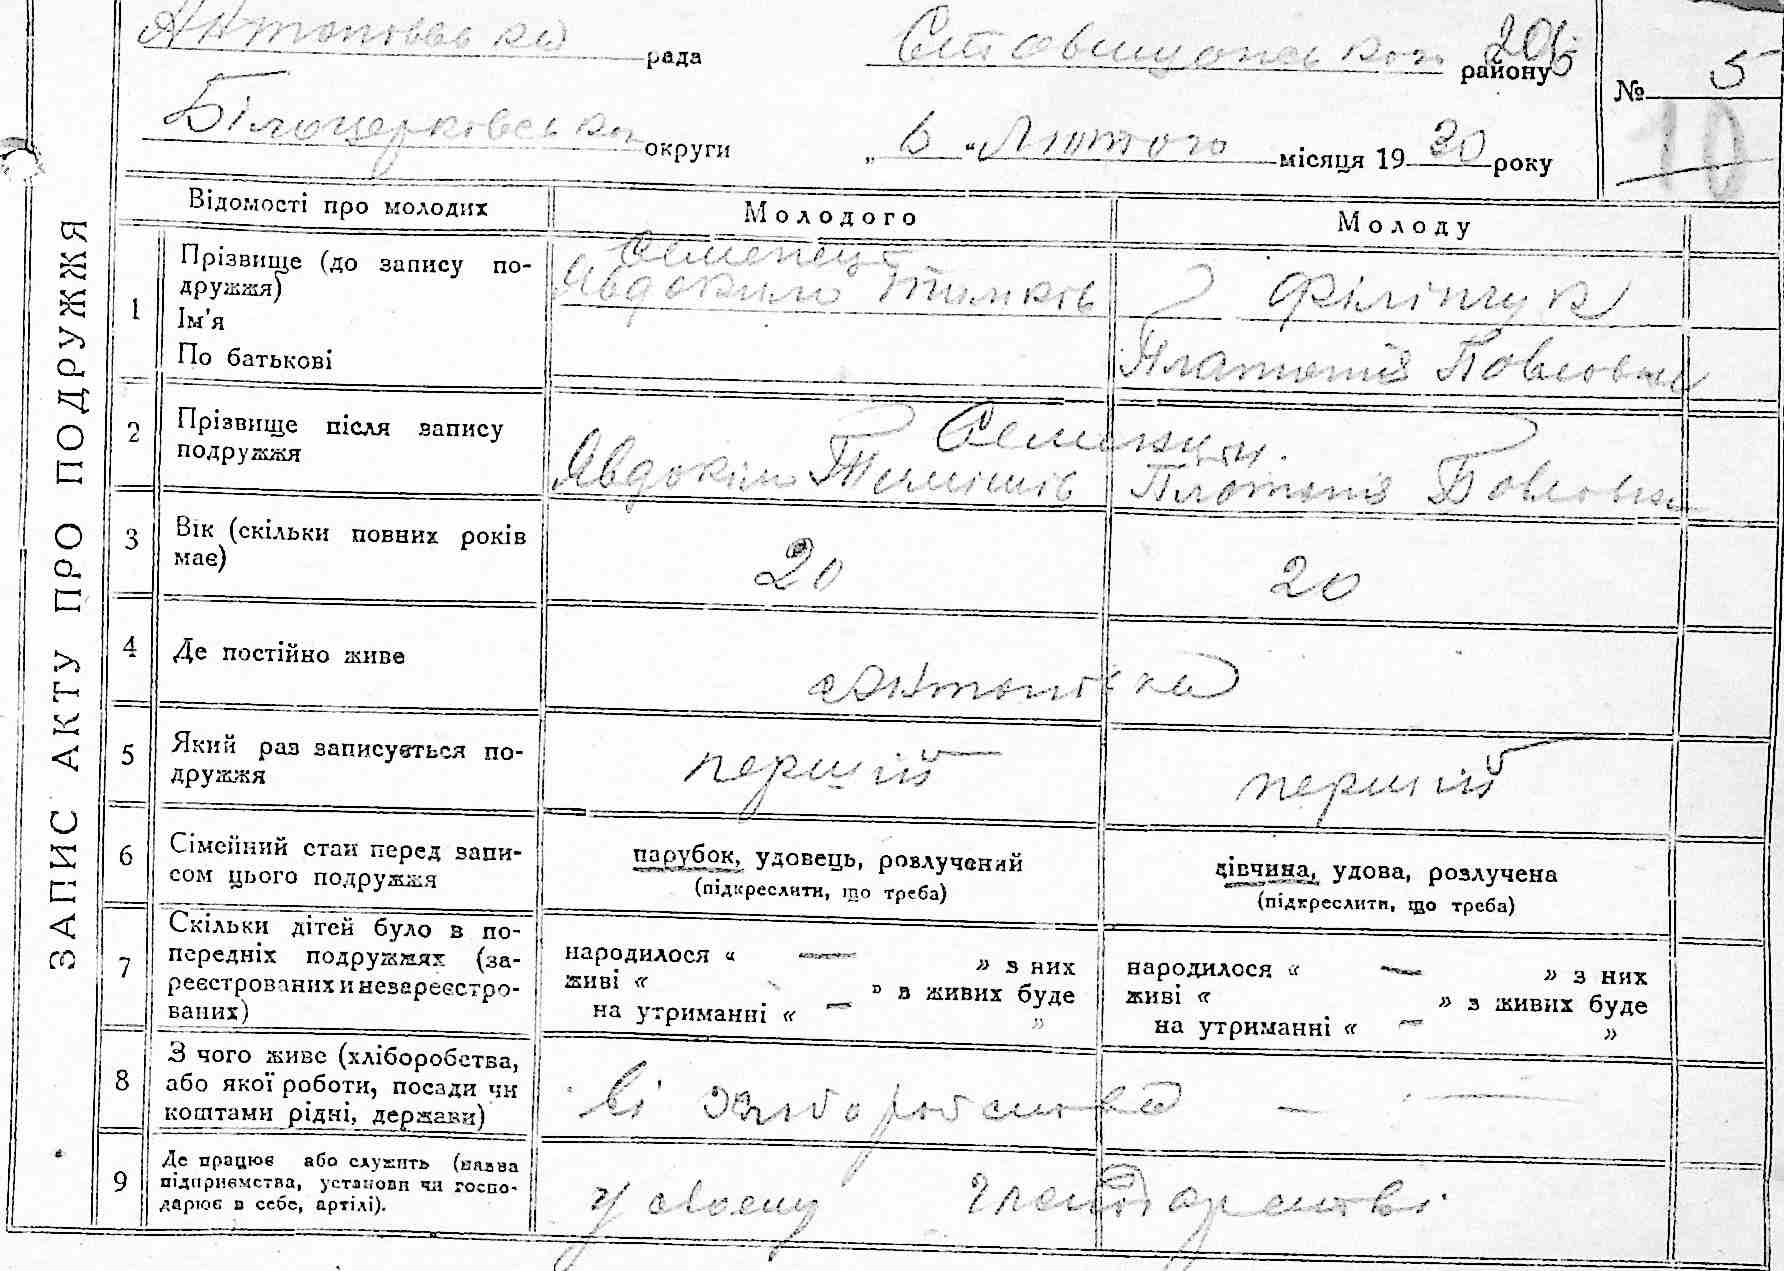 Антонівська рада Ставищанського району 206 № 5
Білоцерківської округи „ 6 “ Лютого місяця 1930 року 10
ЗАПИС АКТУ ПРО ПОДРУЖЖЯ
Відомості про молодих Молодого Молоду
1 Прізвище (до запису по-
дружжя)
Ім'я
По батькові
Семенець
Явдоким Тимків
Філіпчук
Платонія Повловна
2 Прізвище після запису
подружжя
Семенець
Явдокім Тимішів Платонія Бовловна
3 Вік (скільки повних років
має)
20 20
4 Де постійно живе
с Антонівка
5 Який раз записується по-
дружжя
першій першій
6 Сімейний стан перед запи-
сом цього подружжя
парубок, удовець, розлучений
(підкреслити, що треба)
дівчина, удова, розлучена
(підкреслити, що треба)
7 Скільки дітей було в по-
передніх подружжях (за-
реєстрованих и незареєстро-
ваних)
народилося “ — » з них
живі « » з живих буде
на утриманні « — »
народилося “ — » з них
живі « » з живих буде
на утриманні « — »
8 З чого живе (хліборобства,
або якої роботи, посади чи
коштами рідні, держави)
зі хліборобства — —
9 Де працює або служить (назва
підприємства, установи чи госпо-
дарює в себе, артілі).
у своему господарстві